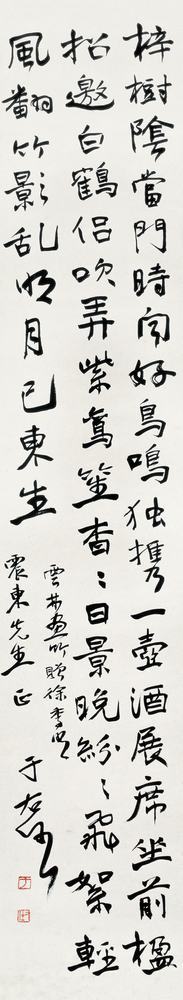 梓樹陰當門時聞好鳥鳴独携一壺酒展席坐前楹
招邀白鶴侣吹弄紫鸞笙杳〻日景晚紛〻飛絮輕
風翻竹影乱明月已東生
雲林画竹贈徐季明
震東先生正
于右任